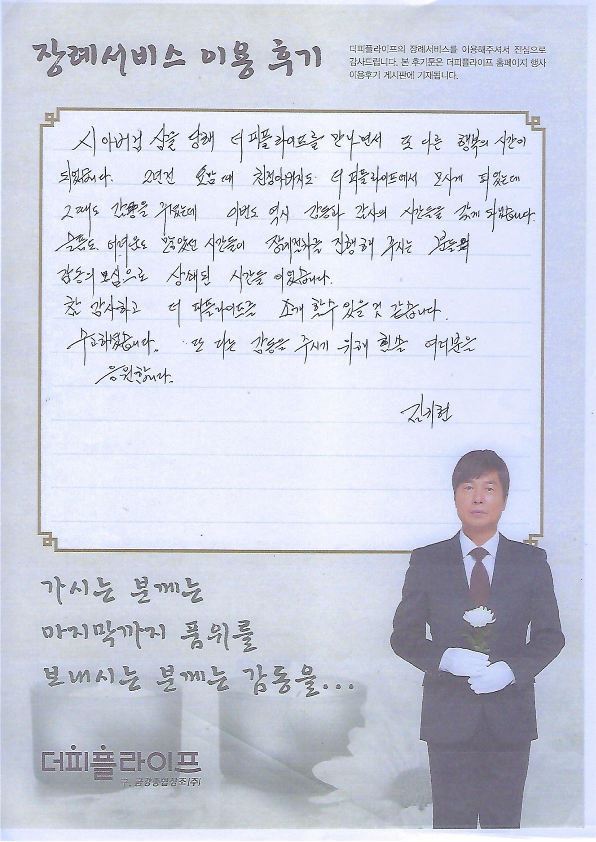 장례서비스 이용 후기
더피플라이프의 장례서비스를 이용해주셔서 진심으로
감사드립니다. 본 후기문은 더피플라이프 홈페이지 행사
이용후기 게시판에 기재됩니다.
시아버님 상을 당해 더 피플라이프를 만나면서 또 다른 행복의 시간이
되었습니다. 2년전 요맘때 친정아버지도 더 피플라이프에서 모시게 되었는데
그때도 감동을 주셨는데 이번도 역시 감동과 감사의 시간들을 갖게 되었습니다.
슬픔도 어려움도 많았던 시간들이 장례절차를 진행해 주시는 분들의
감동의 모심으로 상쇄된 시간들이었습니다.
참 감사하고 더 피플라이프를 소개 할수 있을것 같습니다.
수고하셨습니다. 또 다른 감동을 주시기 위해 힘쓸 여러분을
응원합니다.
김지현
가시는 분께는
마지막까지 품위를
보내시는 분께는 감동을...
더피플라이프
구, 금강종합상조(주)